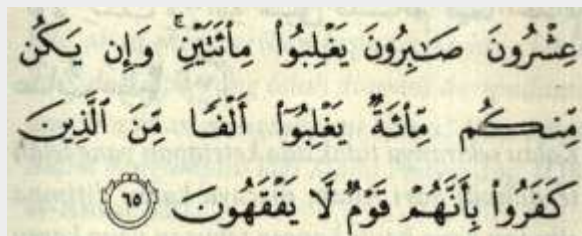 عِشْرُونَ صَٰبِرُونَ يَغْلِبُوا۟ مِا۟ئَتَيْنِ ۚ وَإِن يَكُن
مِّنكُم مِّا۟ئَةٌ يَغْلِبُوٓا۟ أَلْفًا مِّنَ ٱلَّذِينَ
كَفَرُوا۟ بِأَنَّهُمْ قَوْمٌ لَّا يَفْقَهُونَ ٦٥